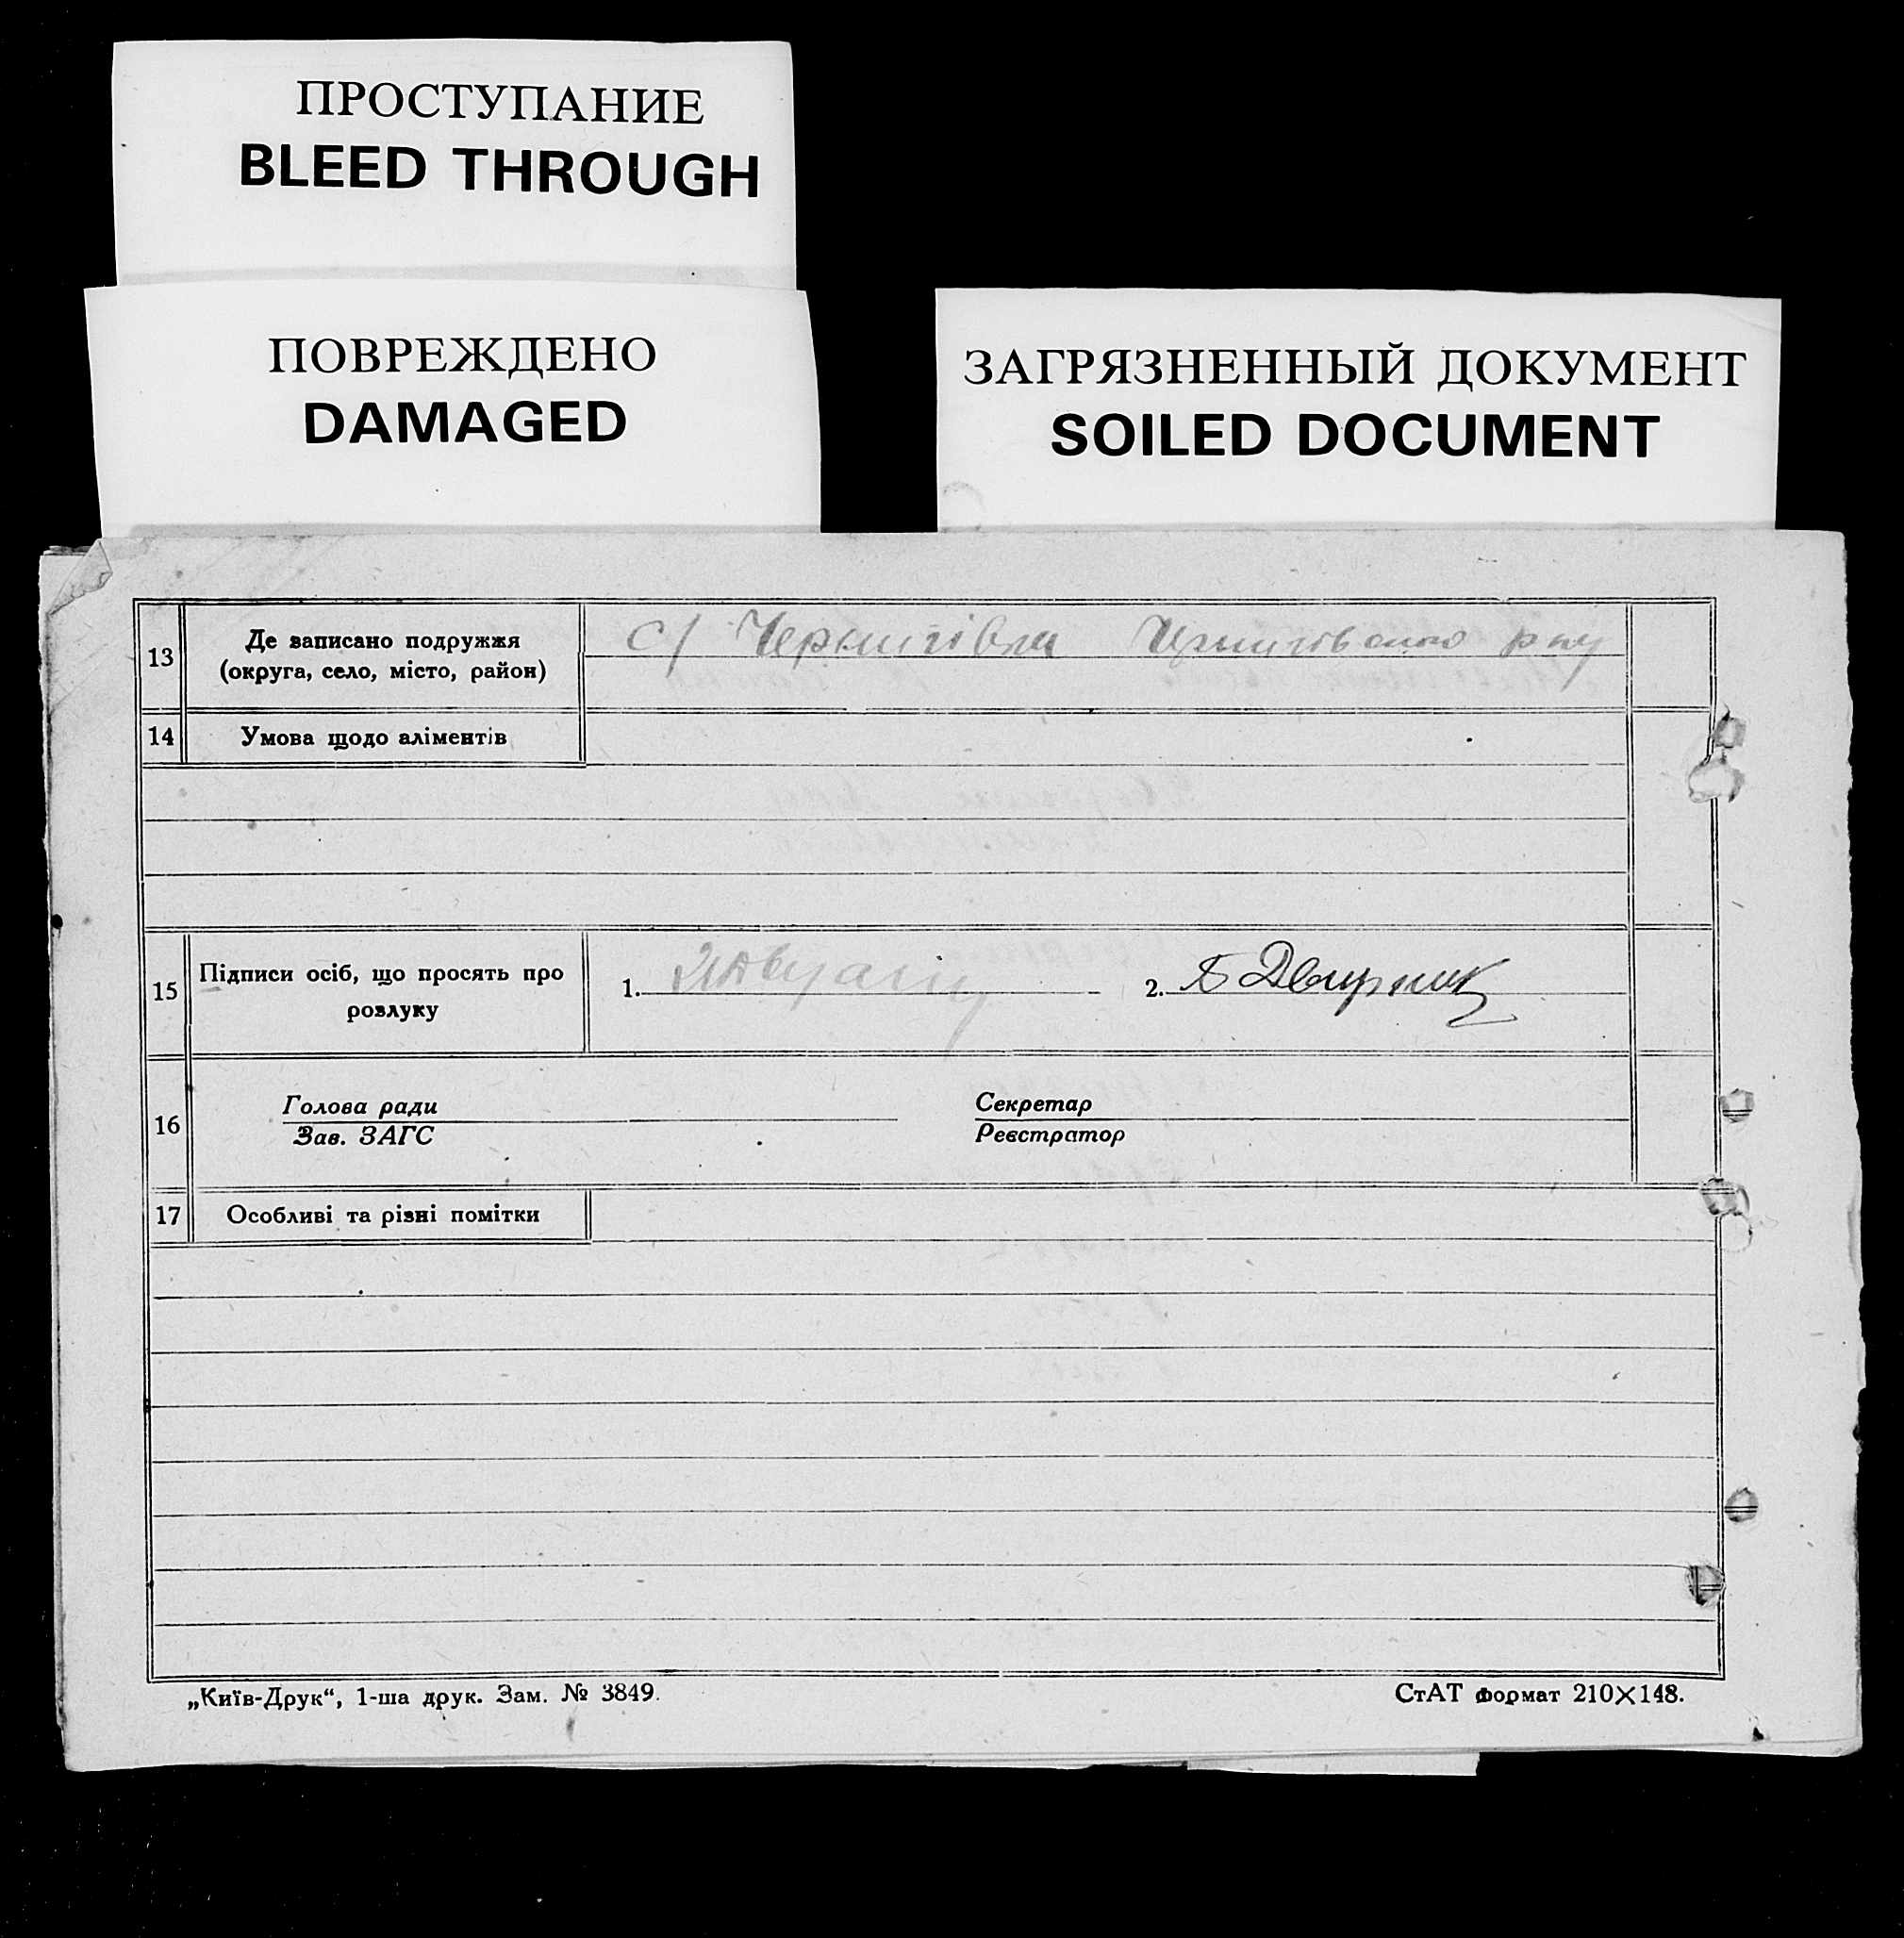 ПРОСТУПАНИЕ
BLEED THROUGH
ПОВРЕЖДЕНО
DAMAGED
ЗАГРЯЗНЕННЫЙ ДОКУМЕНТ
SOILED DOCUMENT
13 Де записано подружжя
(округа, село, місто, район)
с/ Чернигівка Чернигівського р-ну
14 Умова щодо аліментів
15 Підписи осіб, що просять про
розлуку
1. 2. Б Двирник
16 Голова ради Секретар
Зав. ЗАГС Реєстратор
17 Особливі та різні помітки
„Київ-Друк“, 1-ша друк. Зам. № 3849. СтАТ формат 210×148.